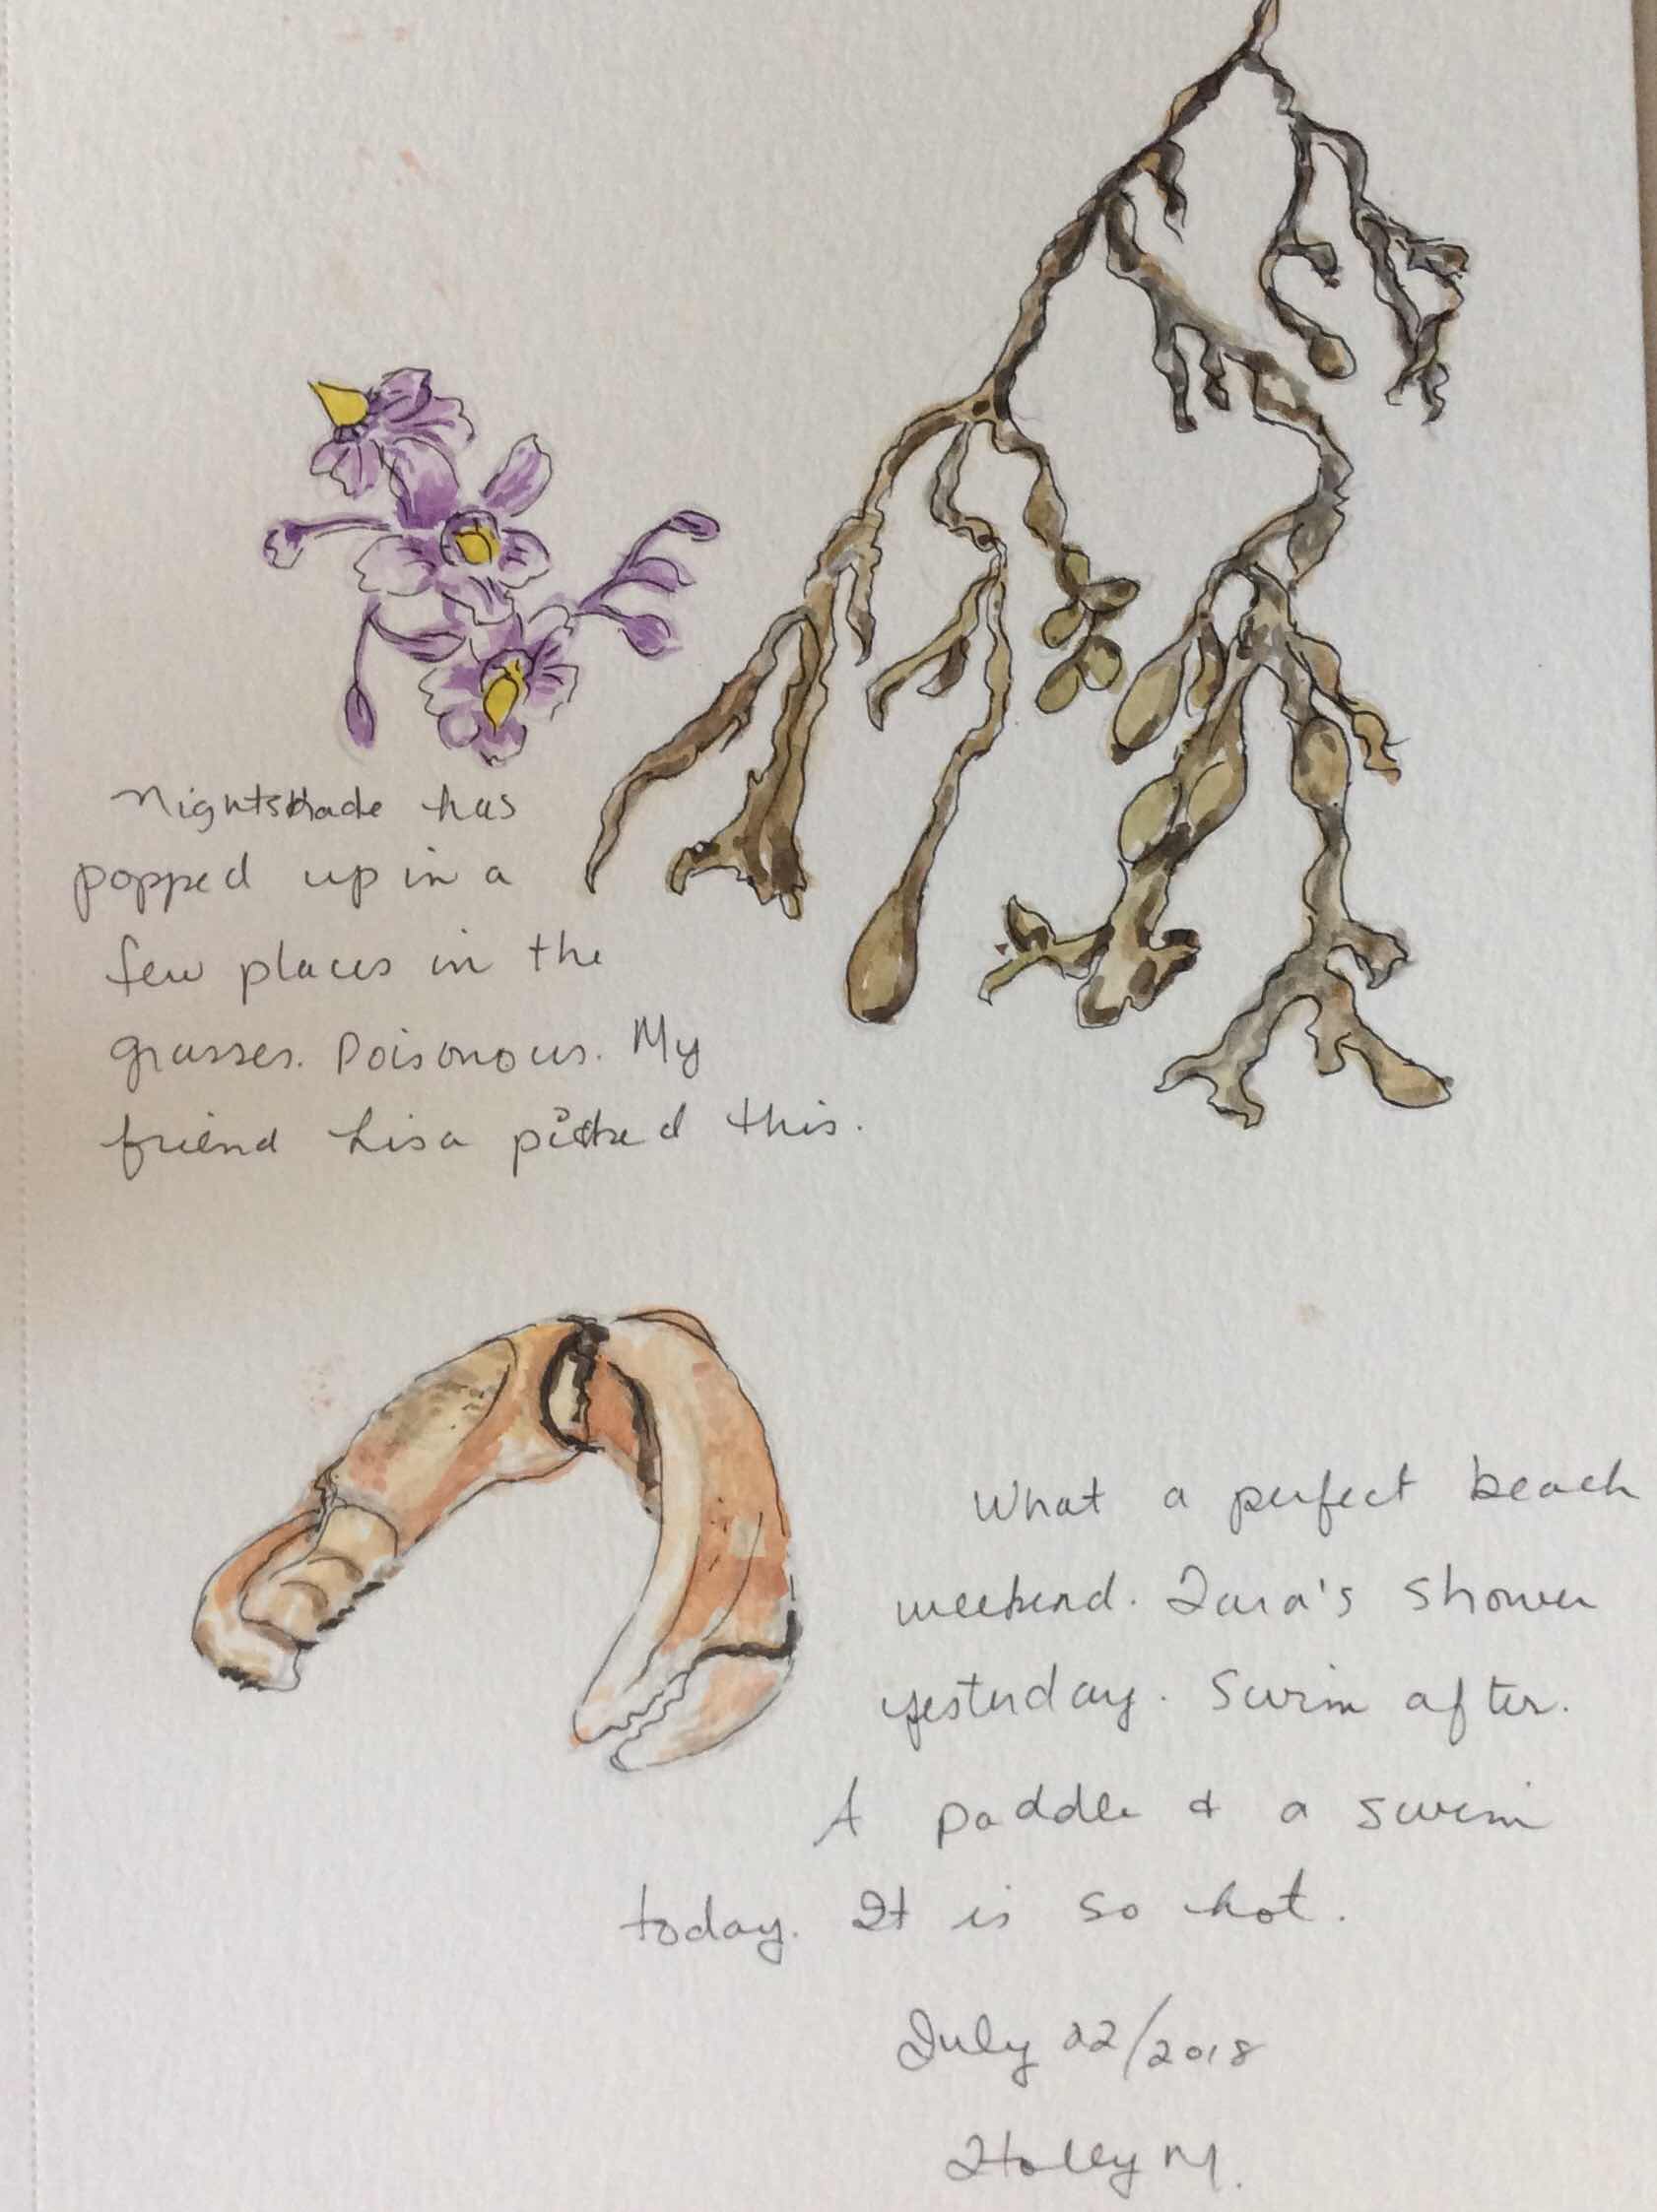 Nightshade has
popped up in a
few places in the
grasses. Poisonous. My
friend Lisa picked this.
What a perfect beach
weekend. Zara's shower
yesterday. Swim after.
A paddle & a swim
today. It is so hot.
July 22/2018
Holly M.